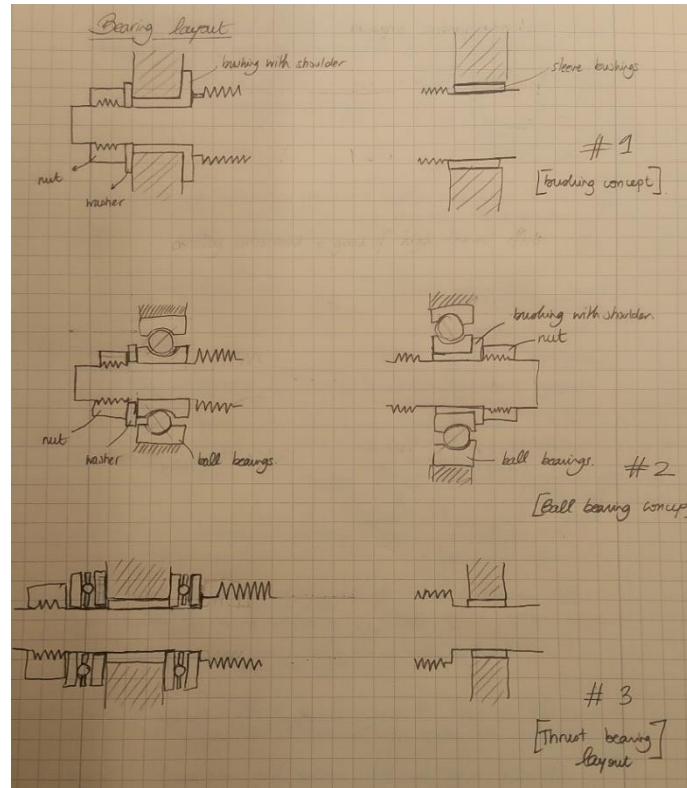 Bearing layout
bushing with shoulder
sleeve bushings
# 1
[bushing concept]
nut
washer
bushing with shoulder.
nut
nut
washer
ball bearings.
ball bearings.
# 2
[Ball bearing concept
# 3
[Thrust bearing
layout]